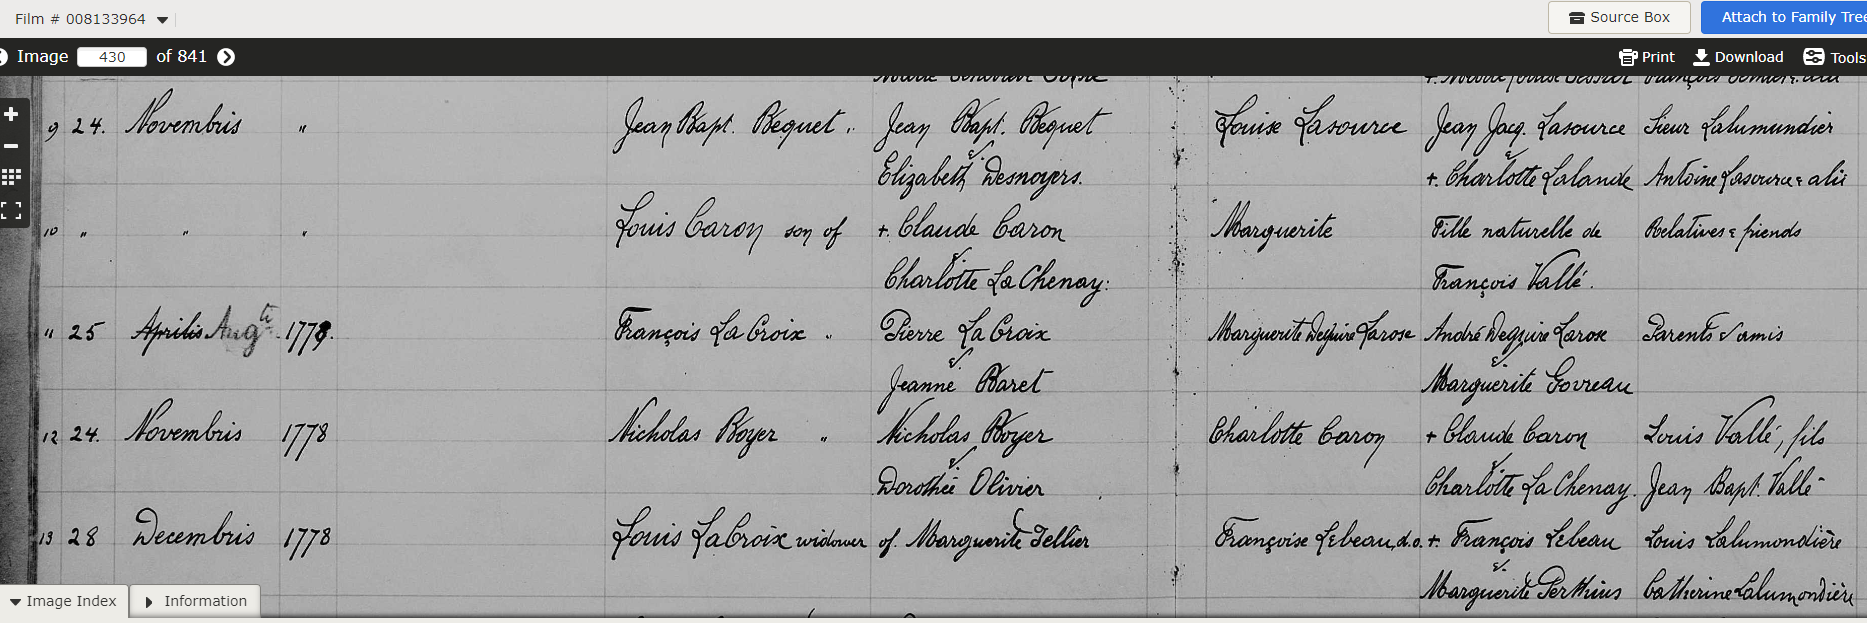 Film # 008133964
Source Box
Attach to Family Tree
Image 430 of 841
Print Download Tools
9 24. Novembris " Jean Bapt. Bequet " Jean Bapt. Bequet Louise Lasource Jean Jacq. Lasource Sieur Lalumundier
& Elizabeth Desnoyers. +. Charlotte Lalande Antoine Lasource & alii
10 " " " Louis Caron son of +. Claude Caron Marguerite Fille naturelle de Relatives & friends
& Charlotte La Chenay: François Vallé.
" 25 Aprilis Augti 1778. François La Croix " Pierre La Croix Marguerite Deguire Larose André Deguire Larose Parents & amis
& Jeanne Baret & Marguerite Govreau
12 24. Novembris 1778 Nicholas Boyer " Nicholas Boyer Charlotte Caron + Claude Caron Louis Vallé, fils
& Dorothée Olivier & Charlotte La Chenay. Jean Bapt. Vallé
13 28 Decembris 1778 Louis LaCroix widower of Marguerite Tellier Françoise Lebeau, d.o. +. François Lebeau Louis Lalumondière
&. Marguerite Perthius Catherine Lalumondière
Image Index Information